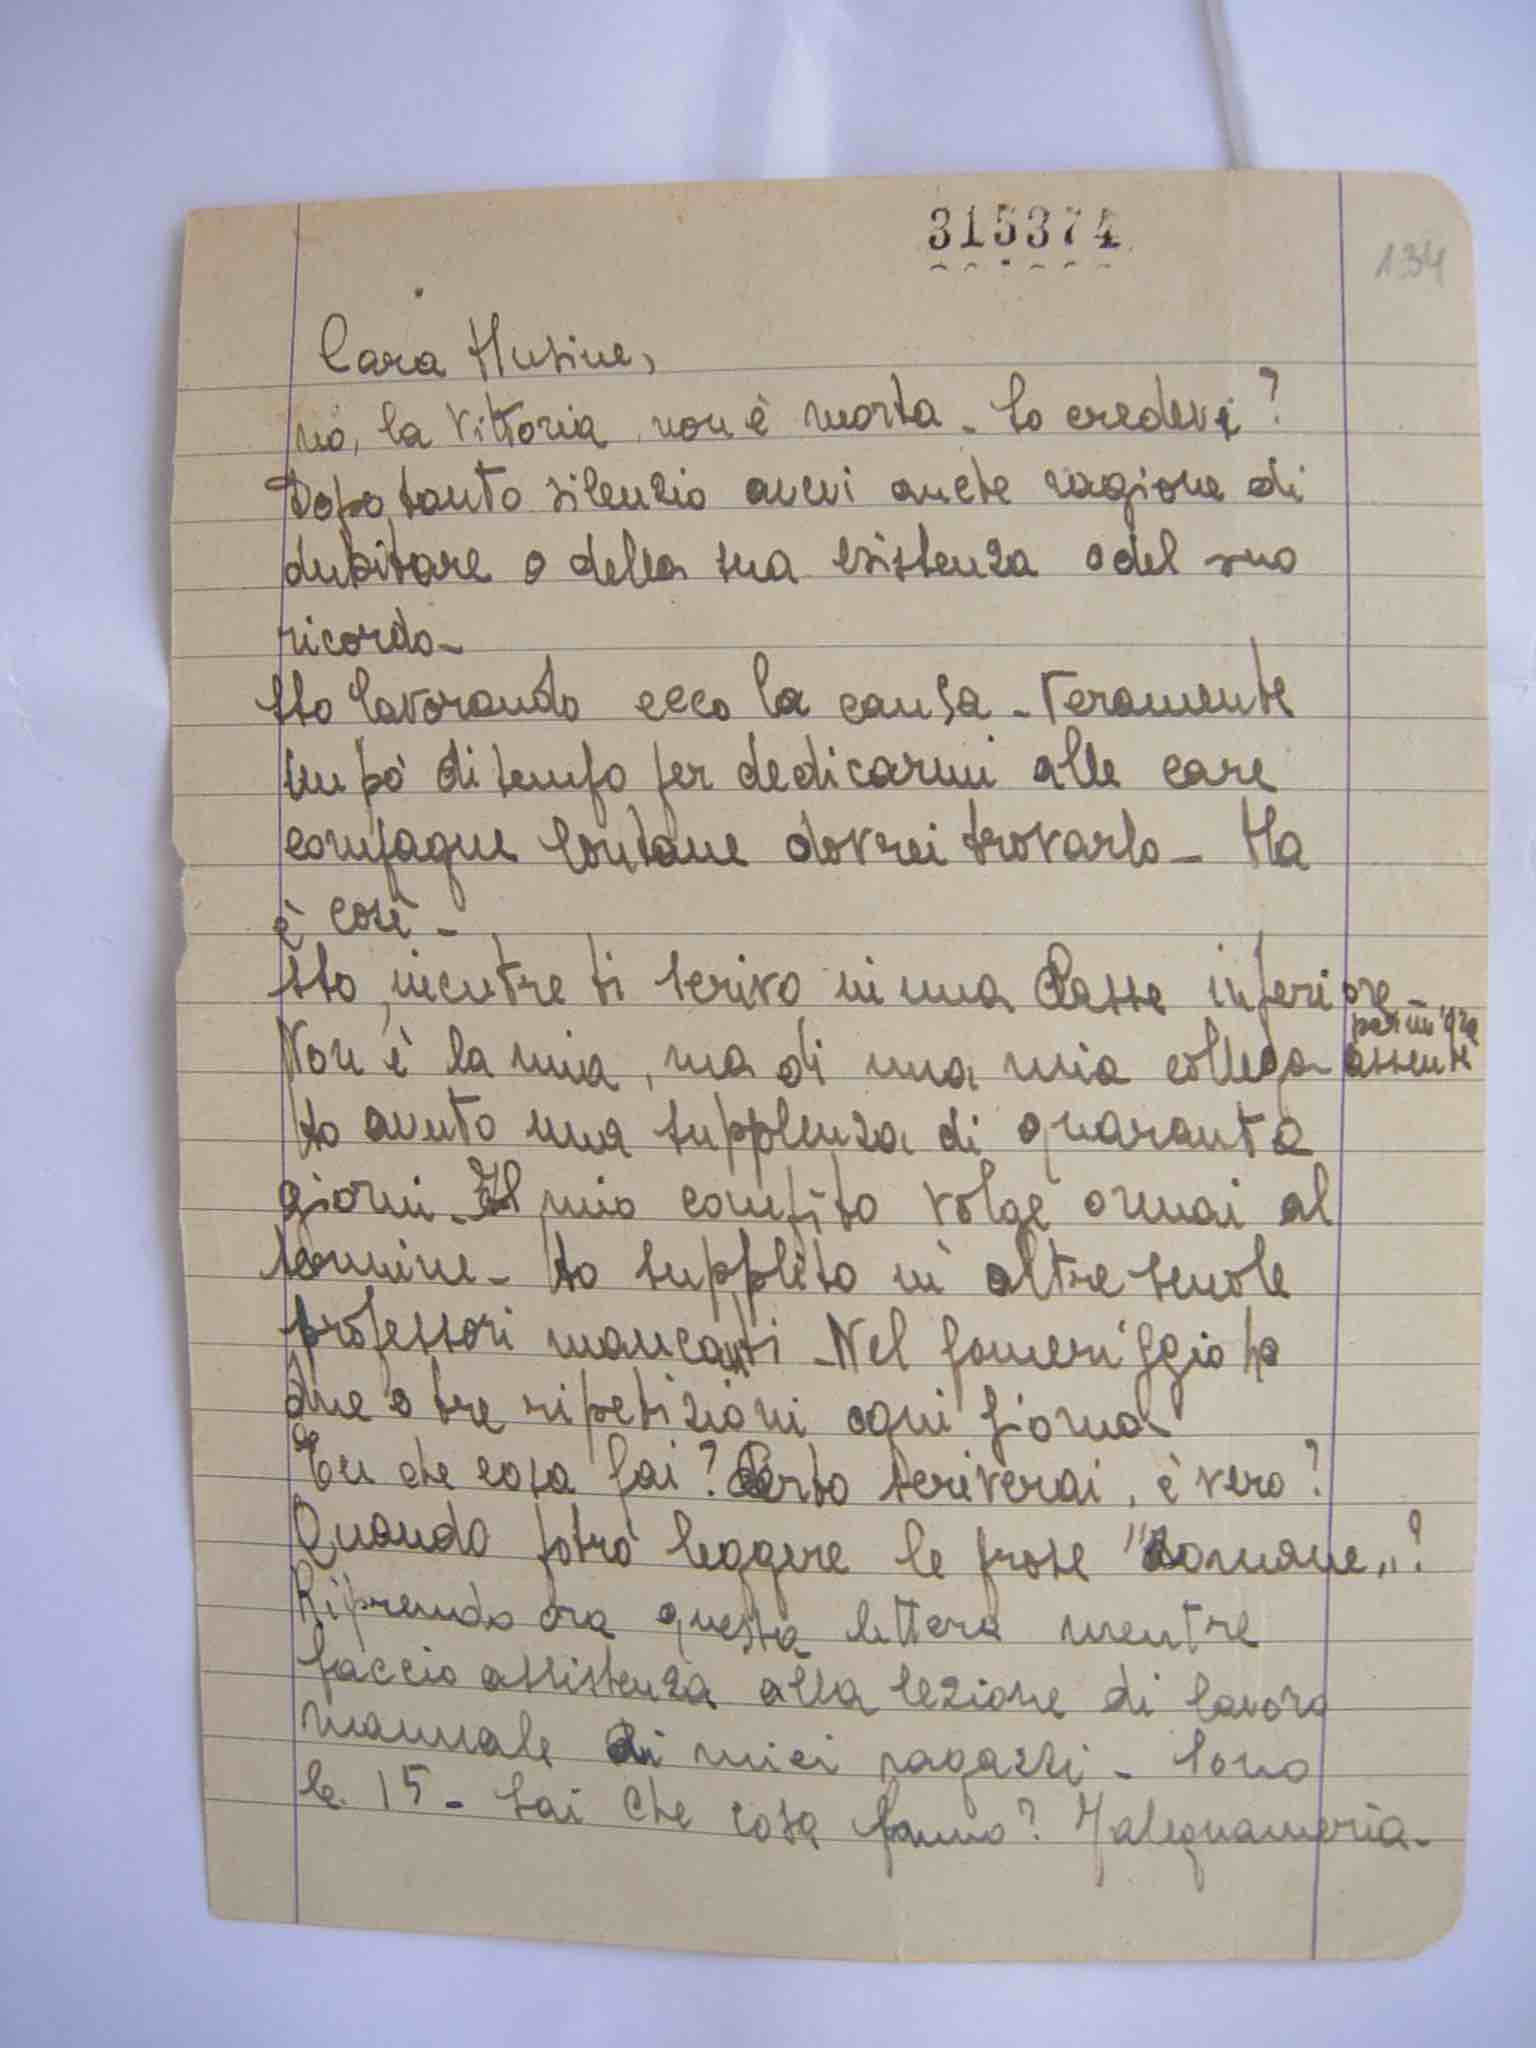 315374
134
Cara Musine,
no, la Vittoria non è morta - Lo credevi?
Dopo tanto silenzio avevi anche ragione di
dubitare o della sua esistenza o del suo
ricordo -
Sto lavorando ecco la causa - Veramente
un po' di tempo per dedicarmi alle care
compagne lontane dovrei trovarlo - Ma
è così -
Sto, mentre ti scrivo in una classe inferiore -
Non è la mia, ma di una mia collega assente
per un'ora
Ho avuto una supplenza di quaranta
giorni - Il mio compito volge ormai al
termine - Ho supplito in altre scuole
professori mancanti - Nel pomeriggio ho
due o tre ripetizioni ogni giorno -
E tu che cosa fai? Certo scriverai, è vero?
Quando potrò leggere le prose "Romane"?
Riprendo ora questa lettera mentre
faccio assistenza alla lezione di lavoro
manuale di miei ragazzi - Sono
le 15 - Sai che cosa fanno? Falegnameria -